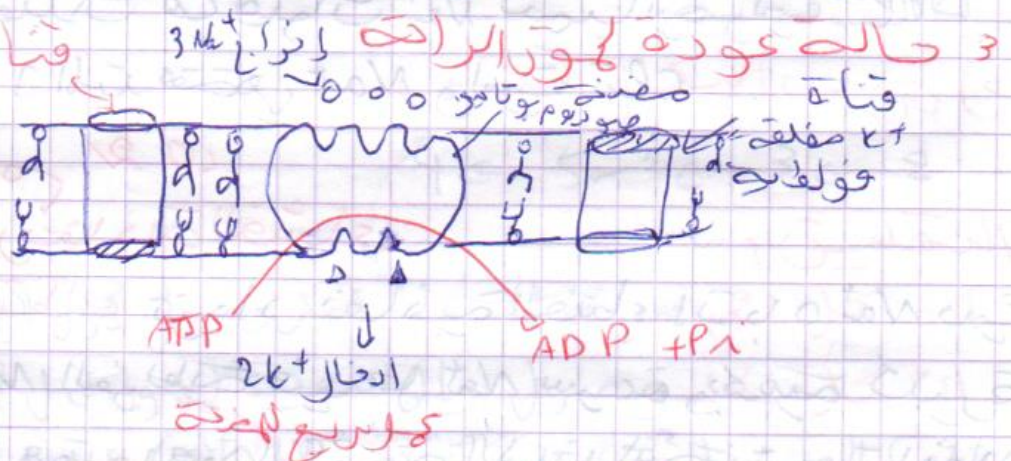 3 حالة عودة كمون الراحة
إخراج 3Na+
قنا
مضخة
صوديوم بوتاسيوم
قناة
K+ مغلقة
فولطية
ATP
ADP +Pi
ادخال 2K+